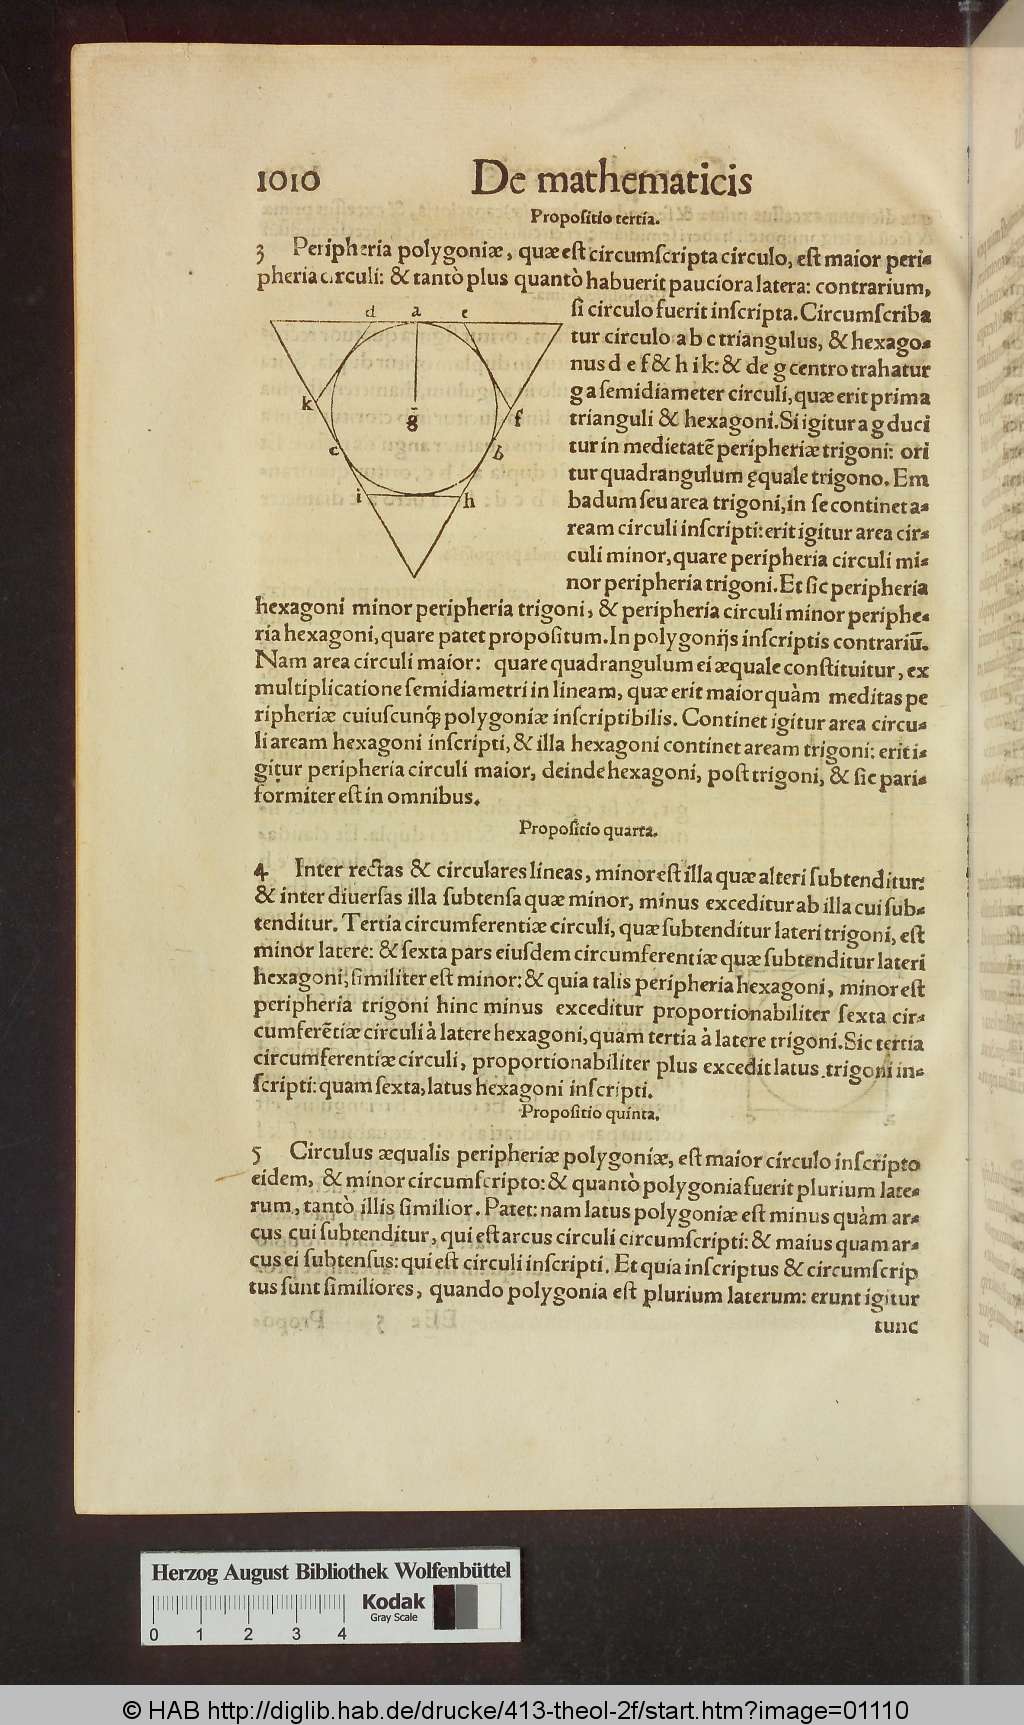 1010 De mathematicis
Propoſitio tertia.
3 Peripheria polygoniæ, quæ eſt circumſcripta circulo, eſt maior peri-
pheria circuli: & tantò plus quantò habuerit pauciora latera: contrarium,
ſi circulo fuerit inſcripta. Circumſcriba
tur circulo a b c triangulus, & hexago-
nus d e f & h i k: & de g centro trahatur
g a ſemidiameter circuli, quæ erit prima
trianguli & hexagoni. Si igitur a g duci
tur in medietatē peripheriæ trigoni: ori
tur quadrangulum ęquale trigono. Em
badum ſeu area trigoni, in ſe continet a-
ream circuli inſcripti: erit igitur area cir-
culi minor, quare peripheria circuli mi-
nor peripheria trigoni. Et ſic peripheria
d a e
k g̃ f
c b
i h
hexagoni minor peripheria trigoni, & peripheria circuli minor periphe-
ria hexagoni, quare patet propoſitum. In polygonijs inſcriptis contrariū.
Nam area circuli maior: quare quadrangulum ei æquale conſtituitur, ex
multiplicatione ſemidiametri in lineam, quæ erit maior quàm meditas pe
ripheriæ cuiuſcunq́; polygoniæ inſcriptibilis. Continet igitur area circu-
li aream hexagoni inſcripti, & illa hexagoni continet aream trigoni: erit i-
gitur peripheria circuli maior, deinde hexagoni, poſt trigoni, & ſic pari-
formiter eſt in omnibus.
Propoſitio quarta.
4 Inter rectas & circulares lineas, minor eſt illa quæ alteri ſubtenditur:
& inter diuerſas illa ſubtenſa quæ minor, minus exceditur ab illa cui ſub-
tenditur. Tertia circumferentiæ circuli, quæ ſubtenditur lateri trigoni, eſt
minor latere: & ſexta pars eiuſdem circumferentiæ quæ ſubtenditur lateri
hexagoni, ſimiliter eſt minor: & quia talis peripheria hexagoni, minor eſt
peripheria trigoni hinc minus exceditur proportionabiliter ſexta cir-
cumferētiæ circuli à latere hexagoni, quàm tertia à latere trigoni. Sic tertia
circumferentiæ circuli, proportionabiliter plus excedit latus trigoni in-
ſcripti: quam ſexta, latus hexagoni inſcripti.
Propoſitio quinta.
5 Circulus æqualis peripheriæ polygoniæ, eſt maior circulo inſcripto
eidem, & minor circumſcripto: & quantò polygonia fuerit plurium late-
rum, tantò illis ſimilior. Patet: nam latus polygoniæ eſt minus quàm ar-
cus cui ſubtenditur, qui eſt arcus circuli circumſcripti: & maius quam ar-
cus ei ſubtenſus: qui eſt circuli inſcripti. Et quia inſcriptus & circumſcrip
tus ſunt ſimiliores, quando polygonia eſt plurium laterum: erunt igitur
tunc
Herzog August Bibliothek Wolfenbüttel
Kodak
Gray Scale
0 1 2 3 4
© HAB http://diglib.hab.de/drucke/413-theol-2f/start.htm?image=01110